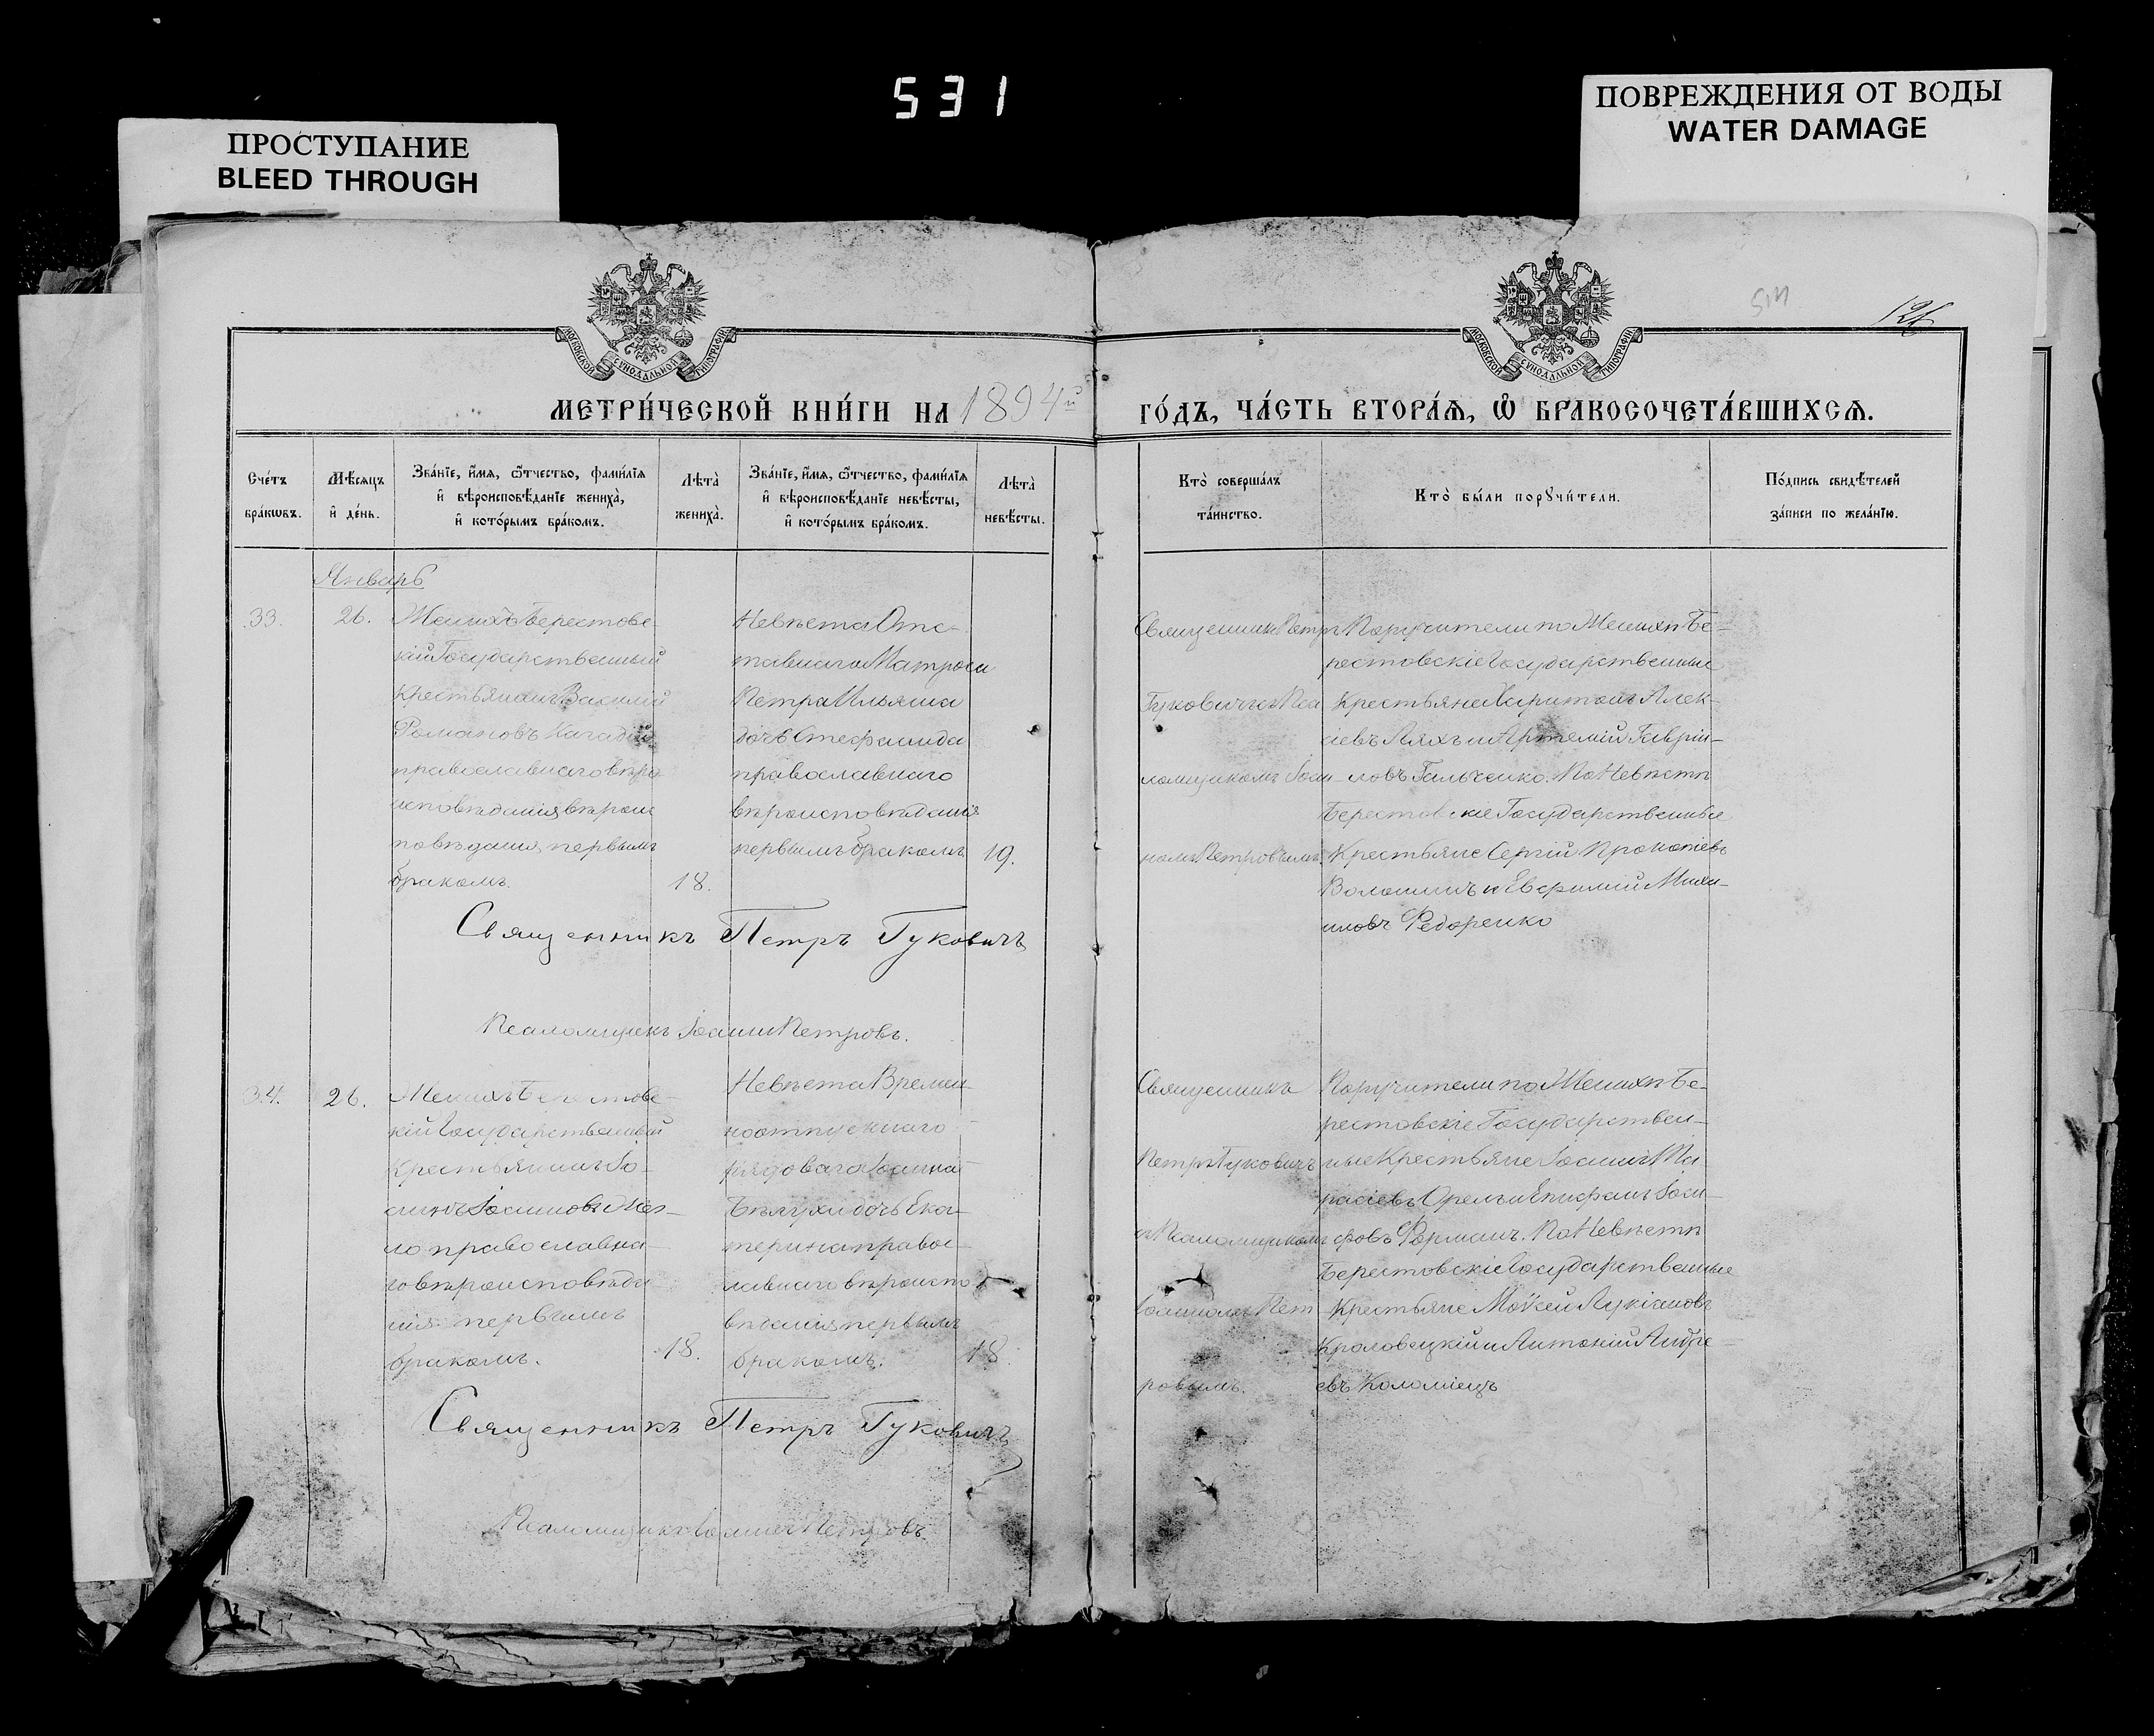 531
ПРОСТУПАНИЕ
BLEED THROUGH
ПОВРЕЖДЕНИЯ ОТ ВОДЫ
WATER DAMAGE
126
МОСКОВСКОЙ СѴНОДАЛЬНОЙ ТИПОГРАФІИ
МОСКОВСКОЙ СѴНОДАЛЬНОЙ ТИПОГРАФІИ
МЕТРИ́ЧЕСКОЙ КНИ́ГИ НА 1894й
ГО́ДЪ, ЧА́СТЬ ВТОРА́Я, Ѡ БРАКОСОЧЕТА́ВШИХСЯ.
Сче́тъ бра́кѡвъ.
Мѣ́сяцъ и де́нь.
Зва́нїе, и́мя, ѻ҆́тчество, фами́лїя
и вѣроисповѣ́данїе жениха̀,
и кото́рымъ бра́комъ.
Лѣта̀ жениха̀.
Зва́нїе, и́мя, ѻ҆́тчество, фами́лїя
и вѣроисповѣ́данїе невѣ́сты,
и кото́рымъ бра́комъ.
Лѣта̀ невѣ́сты.
Кто̀ соверша́лъ
та́инство.
Кто̀ бы́ли порꙋчи́тели.
По́дпись свидѣ́телей
за́писи по жела́нїю.
Январь
33.
26.
Женихъ Берестове-
кій Государственный
Крестьянинъ Василій
Романовъ
православнаго вѣро
исповѣданія вѣроис
повѣданія, первымъ
бракомъ.
18.
Невѣста Отс-
тавнаго Матроса
Петра Ильяша
дочь Стефанида
православнаго
вѣроисповѣданія
первымъ бракомъ
19.
Священник Петръ
Гуковичъ с Пса
ломщикомъ Іоан-
номъ Петровымъ.
Поручители по Женихѣ Бе-
рестовскіе Государственные
Крестьяне Харитонъ Алек-
сіевъ Ляхъ и Артемій Гавріи-
ловъ Гальченко. По Невѣстѣ
Берестовскіе Государственные
Крестьяне Сергій Прокопіевъ
Волошинъ и Евфимій Михаи-
иловъ Федоренко
Священникъ Петръ Гуковичъ
Псаломщикъ Іоаннъ Петровъ.
34.
26.
Женихъ Берестове-
кій Государственный
Крестьянинъ Іо-
аннъ Іоанновъ
ло православна-
го вѣроисповѣда
нія первымъ
бракомъ.
18.
Невѣста Времен-
ноотпускнаго
рядоваго Іоанна
Бѣлухи дочь Ека-
терина правос-
лавнаго вѣроиспо
вѣданія первымъ
бракомъ.
18.
Священникъ
Петръ Гуковичъ
с Псаломщикомъ
Іоанномъ Пет
ровымъ.
Поручители по Женихѣ Бе-
рестовскіе Государствен-
ные Крестьяне Іоаннъ Та
расіевъ Орелъ и Епифанъ Іоси-
фовъ Форманъ. По Невѣстѣ
Берестовскіе Государственные
Крестьяне Мойсей Лукіановъ
Кроловецкій и Антоній Андре-
евъ Коломіецъ
Священникъ Петръ Гуковичъ
Псаломщикъ Іоаннъ Петровъ.